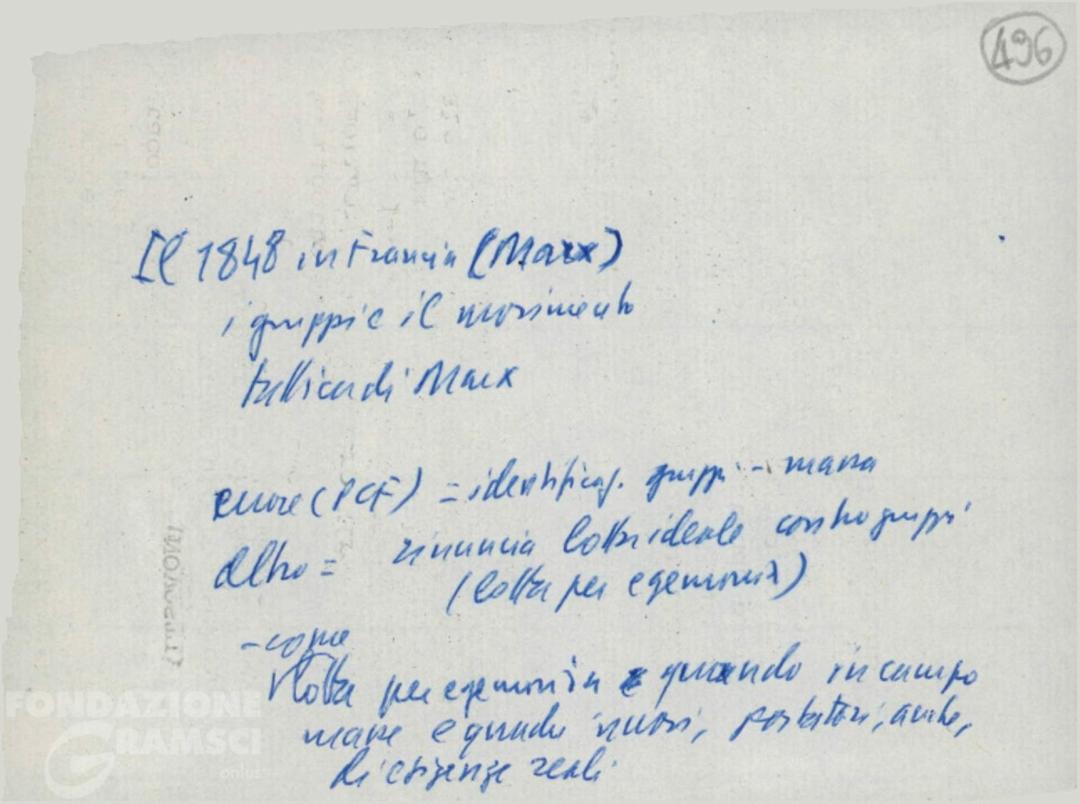 496
Il 1848 in Francia (Marx)
i gruppi e il movimento
tattica di Marx
errore (PCF) = identificaz. gruppi - massa
altro = rinuncia lotta ideale contro gruppi
(lotta per egemonia)
- come
lotta per egemonia e quando in campo
masse e quando nuovi, portatori, anche,
di esigenze reali
FONDAZIONE
GRAMSCI
onlus